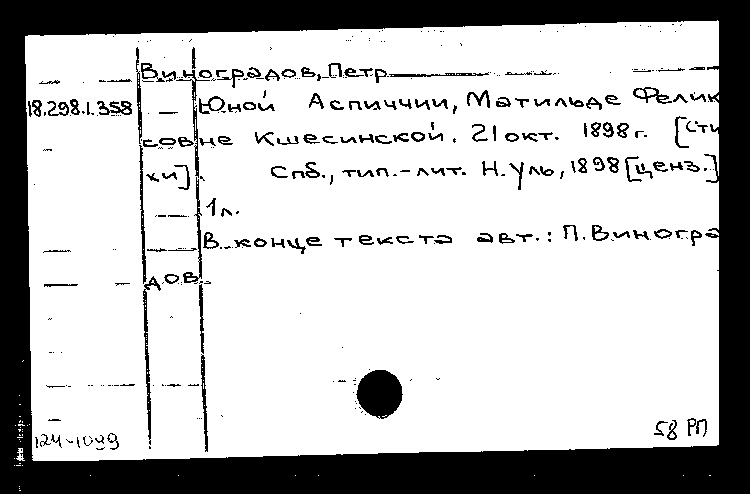 Виноградов, Петр
18.298.1.358 Юной Аспиччии, Матильде Феликсовне Кшесинской. 21 окт. 1898 г. [Сти
хи]. Спб., тип.-лит. Н. Уль, 1898 [ценз.]
1 л.
В конце текста авт.: П. Виногра
дов.
124-1099 58 РП